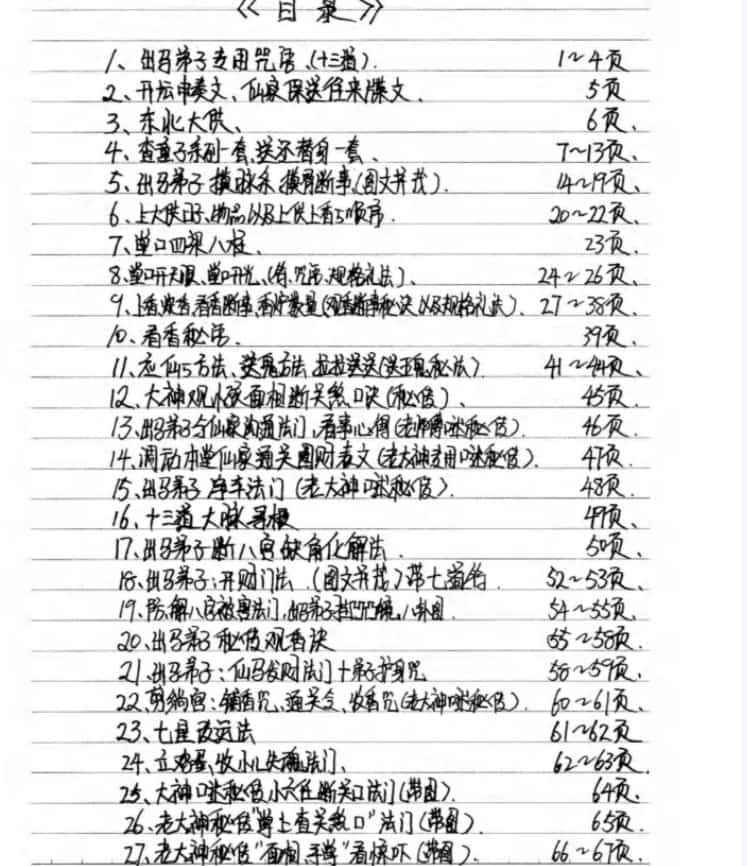 《目录》
1、出马弟子专用咒语、(十三道). 1~4页
2、开坛申奏文、仙家保送往来牒文. 5页
3、东北大供、 6页、
4、查童子亲列一套,送还替身一套、 7~13页、
5、出马弟子摸脉条,摸骨断事(图文并茂). 14~19页、
6、上大供日子、物品以及上供上香的顺序. 20~22页、
7、堂口四梁八柱、 23页、
8、堂口开天眼、堂口开光、(符.咒语.规格礼法). 24~26页、
9、上香、看香断事 27~38页、
10、看香秘语. 39页、
11、应仙方法、送鬼方法 41~44页、
12、大神观小家面相断关煞口诀(秘传)、 45页
13、出马弟子令仙家沟通法门、看事心得 46页
14、调动本堂仙家通关图财表文(老大神专用口咪秘传). 47页、
15、出马弟子净车法门(老大神口咪秘传). 48页、
16、十三道大脉寻根 49页、
17、出马弟子断八宫缺角化解法. 50页、
18、出马弟子:开财门法.(图文并茂)带七道符. 52~53页、
19、防、解八宫被害法门、八卦图. 54~55页、
20、出马弟子秘传观香诀 55~58页.
21、出马弟子:仙马发财法门+弟子护身咒 58~59页、
22、剪鹊宫:铺香咒、通关令、收香咒(老大神口咪秘传). 60~61页、
23、七星改运法 61~62页
24、立鸡蛋、收小儿失魂法门、 62~63页、
25、大神口咪秘传小六任断关口法门(带图). 64页、
26、老大神秘传"掌上查关煞口"法门(带图). 65页、
27、老大神秘传"面相、手掌"看惊吓(带图). 66~67页、